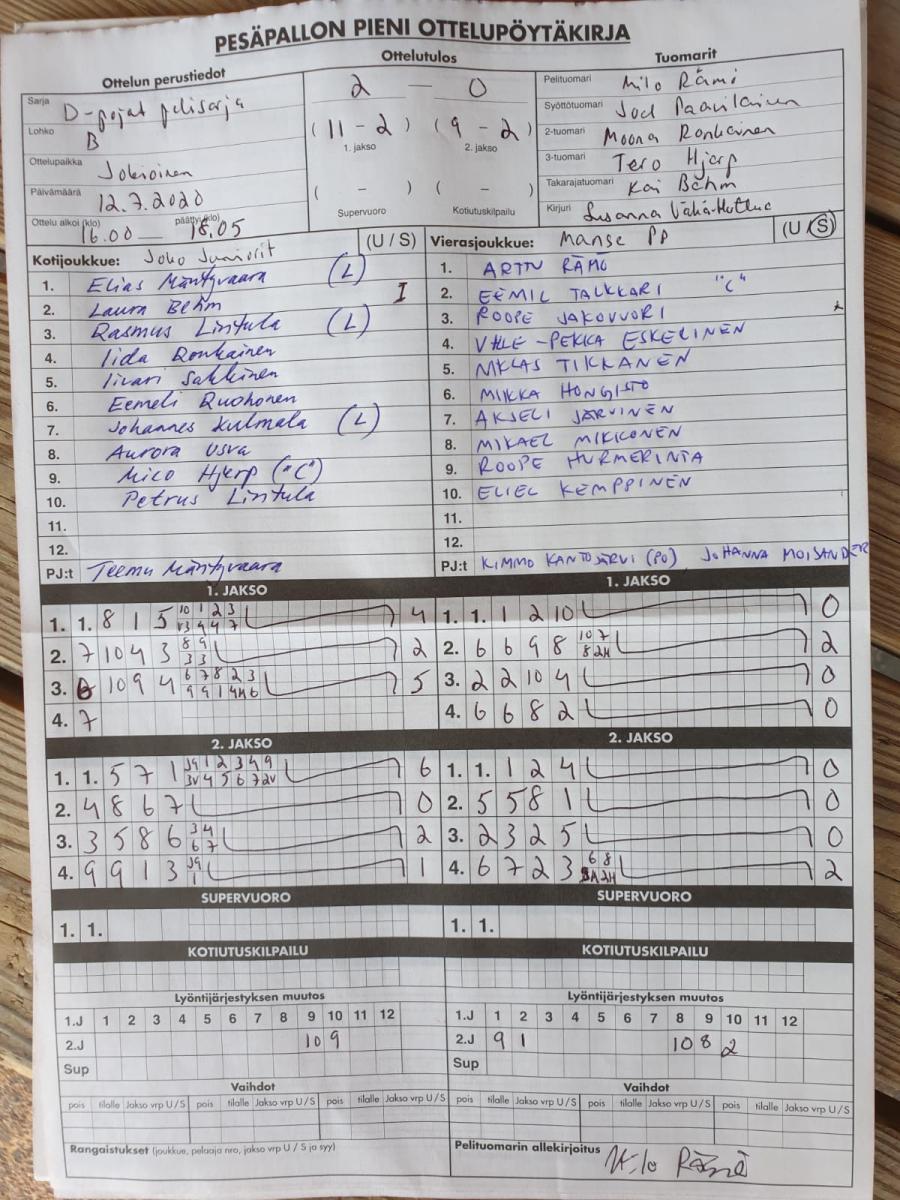 PESÄPALLON PIENI OTTELUPÖYTÄKIRJA
Ottelun perustiedot
Ottelutulos
Tuomarit
Sarja D-pojat pelisarja
Lohko B
Ottelupaikka Jokioinen
Päivämäärä 12.7.2020
Ottelu alkoi (klo) 16.00 päättyi (klo) 18.05
2 — 0
( 11 - 2 ) ( 9 - 2 )
1. jakso 2. jakso
( - ) ( - )
Supervuoro Kotiutuskilpailu
Pelituomari Milo Rämö
Syöttötuomari Joel Paavilainen
2-tuomari Moona Ronkainen
3-tuomari Tero Hjerp
Takarajatuomari Kai Böhm
Kirjuri Susanna
Kotijoukkue: Joko Juniorit (U / S)
1. Elias Mäntyvaara (L)
2. Laura Behm I
3. Rasmus Lintula (L)
4. Iida Ronkainen
5. Iivari Sakkinen
6. Eemeli Ruohonen
7. Johannes Kulmala (L)
8. Aurora Usva
9. Mico Hjerp ("C")
10. Petrus Lintula
11.
12.
PJ:t Teemu Mäntyvaara
Vierasjoukkue: Manse PP (U / S)
1. ARTTU RÄMÖ
2. EEMIL TALKKARI "C"
3. ROOPE JAKOVUORI
4. VILLE-PEKKA ESKELINEN
5. NIKLAS TIKKANEN
6. MIIKKA HONGISTO
7. AKSELI JÄRVINEN
8. MIKAEL MIKKONEN
9. ROOPE HURMERINTA
10. ELIEL KEMPPINEN
11.
12.
PJ:t KIMMO KANTOJÄRVI (PO) JOHANNA MOISANDER
1. JAKSO
1. 1. 8 1 5 10 1 2 3 4
V3 9 4 7
2. 7 10 4 3 8 9 2
3 3
3. 6 10 9 4 6 7 8 2 3 5
9 9 1 4H 6
4. 7
1. JAKSO
1. 1. 1 2 10 0
2. 6 6 9 8 10 7 2
8 2H
3. 2 2 10 4 0
4. 6 6 8 2 0
2. JAKSO
1. 1. 5 7 1 J9 1 2 3 4 9 6
3V 4 5 6 7 2V
2. 4 8 6 7 0
3. 3 5 8 6 3 4 2
6 7
4. 9 9 1 3 J9 1
1
2. JAKSO
1. 1. 1 2 4 0
2. 5 5 8 1 0
3. 2 3 2 5 0
4. 6 7 2 3 6 8 2
2H
SUPERVUORO
1. 1.
SUPERVUORO
1. 1.
KOTIUTUSKILPAILU
KOTIUTUSKILPAILU
Lyöntijärjestyksen muutos
1.J 1 2 3 4 5 6 7 8 9 10 11 12
2.J 10 9
Sup
Lyöntijärjestyksen muutos
1.J 1 2 3 4 5 6 7 8 9 10 11 12
2.J 9 1 10 8 2
Sup
Vaihdot
pois tilalle Jakso vrp U / S pois tilalle Jakso vrp U / S pois tilalle Jakso vrp U / S
Vaihdot
pois tilalle Jakso vrp U / S pois tilalle Jakso vrp U / S pois tilalle Jakso vrp U / S
Rangaistukset (joukkue, pelaaja nro, jakso vrp U / S ja syy)
Pelituomarin allekirjoitus Milo Rämö